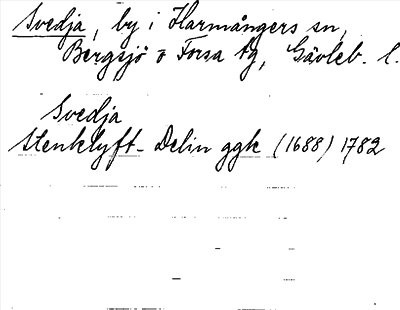 Svedja, by i Harmångers sn,
Bergsjö o Forsa tg, Gävleb. l.
Svedja
Stenklyft- Delin ggk (1688) 1782